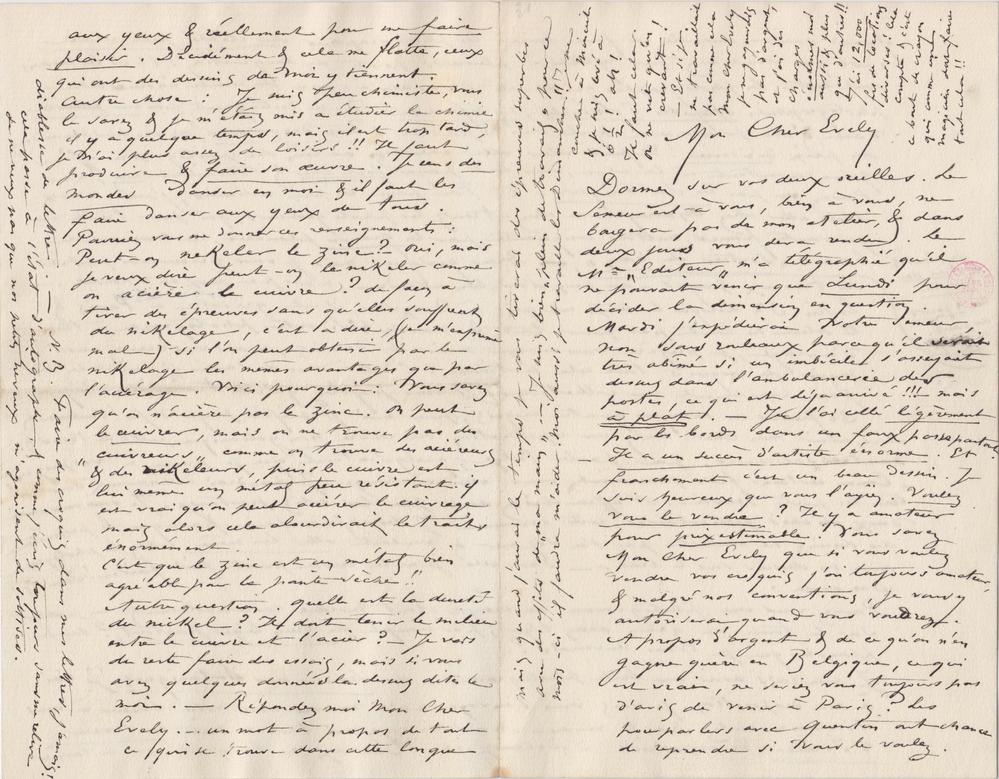 Mon Cher Evely
Dormez sur vos deux oreilles. Le
Semeur est à vous, bien à vous, ne
bougera pas de mon atelier, & dans
deux jours vous sera rendu. Le
Mr "Editeur" m'a télégraphié qu'il
ne pouvait venir que Lundi pour
décider la dimension en question.
Mardi j'expédierai votre Semeur,
non sans rouleaux parce qu'il serait
très abimé si un imbécile s'asseyait
dessus dans l'ambulancerie des
postes, ce qui est déja arrivé !!! mais
à plat. — Je l'ai collé légèrement
par les bords dans un faux passepartout
— Il a un succès d'artiste énorme. Et
franchement c'est un beau dessin. Je
suis heureux que vous l'ayiez. Voulez
vous le vendre ? Il y a amateur
pour prix estimable. Vous savez
Mon Cher Evely que si vous voulez
vendre vos croquis, j'ai toujours amateur,
& malgré nos conventions, je vous y
autoriserai quand vous voudrez.
A propos d'argent & de ce qu'on n'en
gagne guère en Belgique, ce qui
est vrai, ne seriez vous toujours pas
d'avis de venir à Paris ? Les
pourparlers avec Quentin ont chance
de reprendre si vous le voulez.
aux yeux & réellement pour me faire
plaisir. Décidément & cela me flatte, ceux
qui ont des dessins de moi y tiennent.
Autre chose : Je suis peu chimiste, vous
le savez & je m'étais mis à étudier la chimie
il y a quelque temps, mais il est trop tard,
je n'ai plus assez de loisirs !! Il faut
produire & faire son œuvre. Je sens des
mondes danser en moi & il faut les
faire danser aux yeux de tous.
Pourriez vous me donner ces renseignements :
Peut-on nickeler le zinc ? oui, mais
je veux dire peut-on le nikeler comme
on acière le cuivre ? de façon à
tirer des épreuves sans qu'elles souffrent
du nikelage, c'est à dire, (je m'exprime
mal —) si l'on peut obtenir par le
nikelage les mêmes avantages que par
l'aciérage. Voici pourquoi : Vous savez
qu'on n'acière pas le zinc. On peut
le cuivrer, mais on ne trouve pas des
"cuivreurs" comme on trouve des aciéreurs
& des nikeleurs, puis le cuivre est
lui même un métal peu résistant. il
est vrai qu'on peut aciérer le cuivrage
mais alors cela alourdirait le trait
énormément.
C'est que le zinc est un métal bien
agréable pour la pointe sèche !!
Autre question. quelle est la dureté
du nickel ? Il doit tenir le milieu
entre le cuivre et l'acier ? — Je vais
du reste faire des essais, mais si vous
avez quelques données là dessus dites le
moi. — Répondez moi Mon Cher
Evely — un mot à propos de tout
ce qui se trouve dans cette longue
diablesse de lettre. — N.B. Faire des croquis dans mes lettres, jamais !
cela passe à l'état d'autographe & comme j'écris toujours sans me relire
je ne veux pas que nos petits neveux m'agonisent de sottises.
mais quand j'aurai le temps & vous tirerai des épreuves superbes
avec des effets de "ma main" — Je suis bien plein de travail, & pour ce
mois-ci il faudra m'aider. moi aussi je travaille les Dimanches !!
& je suis levé à
Il faut cela,
on ne vit que bien
— Et si je
ne travaillais
pas comme cela
Mon cher Evely
je ne gagnerais
pas d'argent,
et j'ai des
charges
aussi & plus
que d'autres !!
j'ai 12,000
frs de
diverses !
compte, & c'est
ce bout de crayon
qui comme un
magicien doit faire
tout cela !!